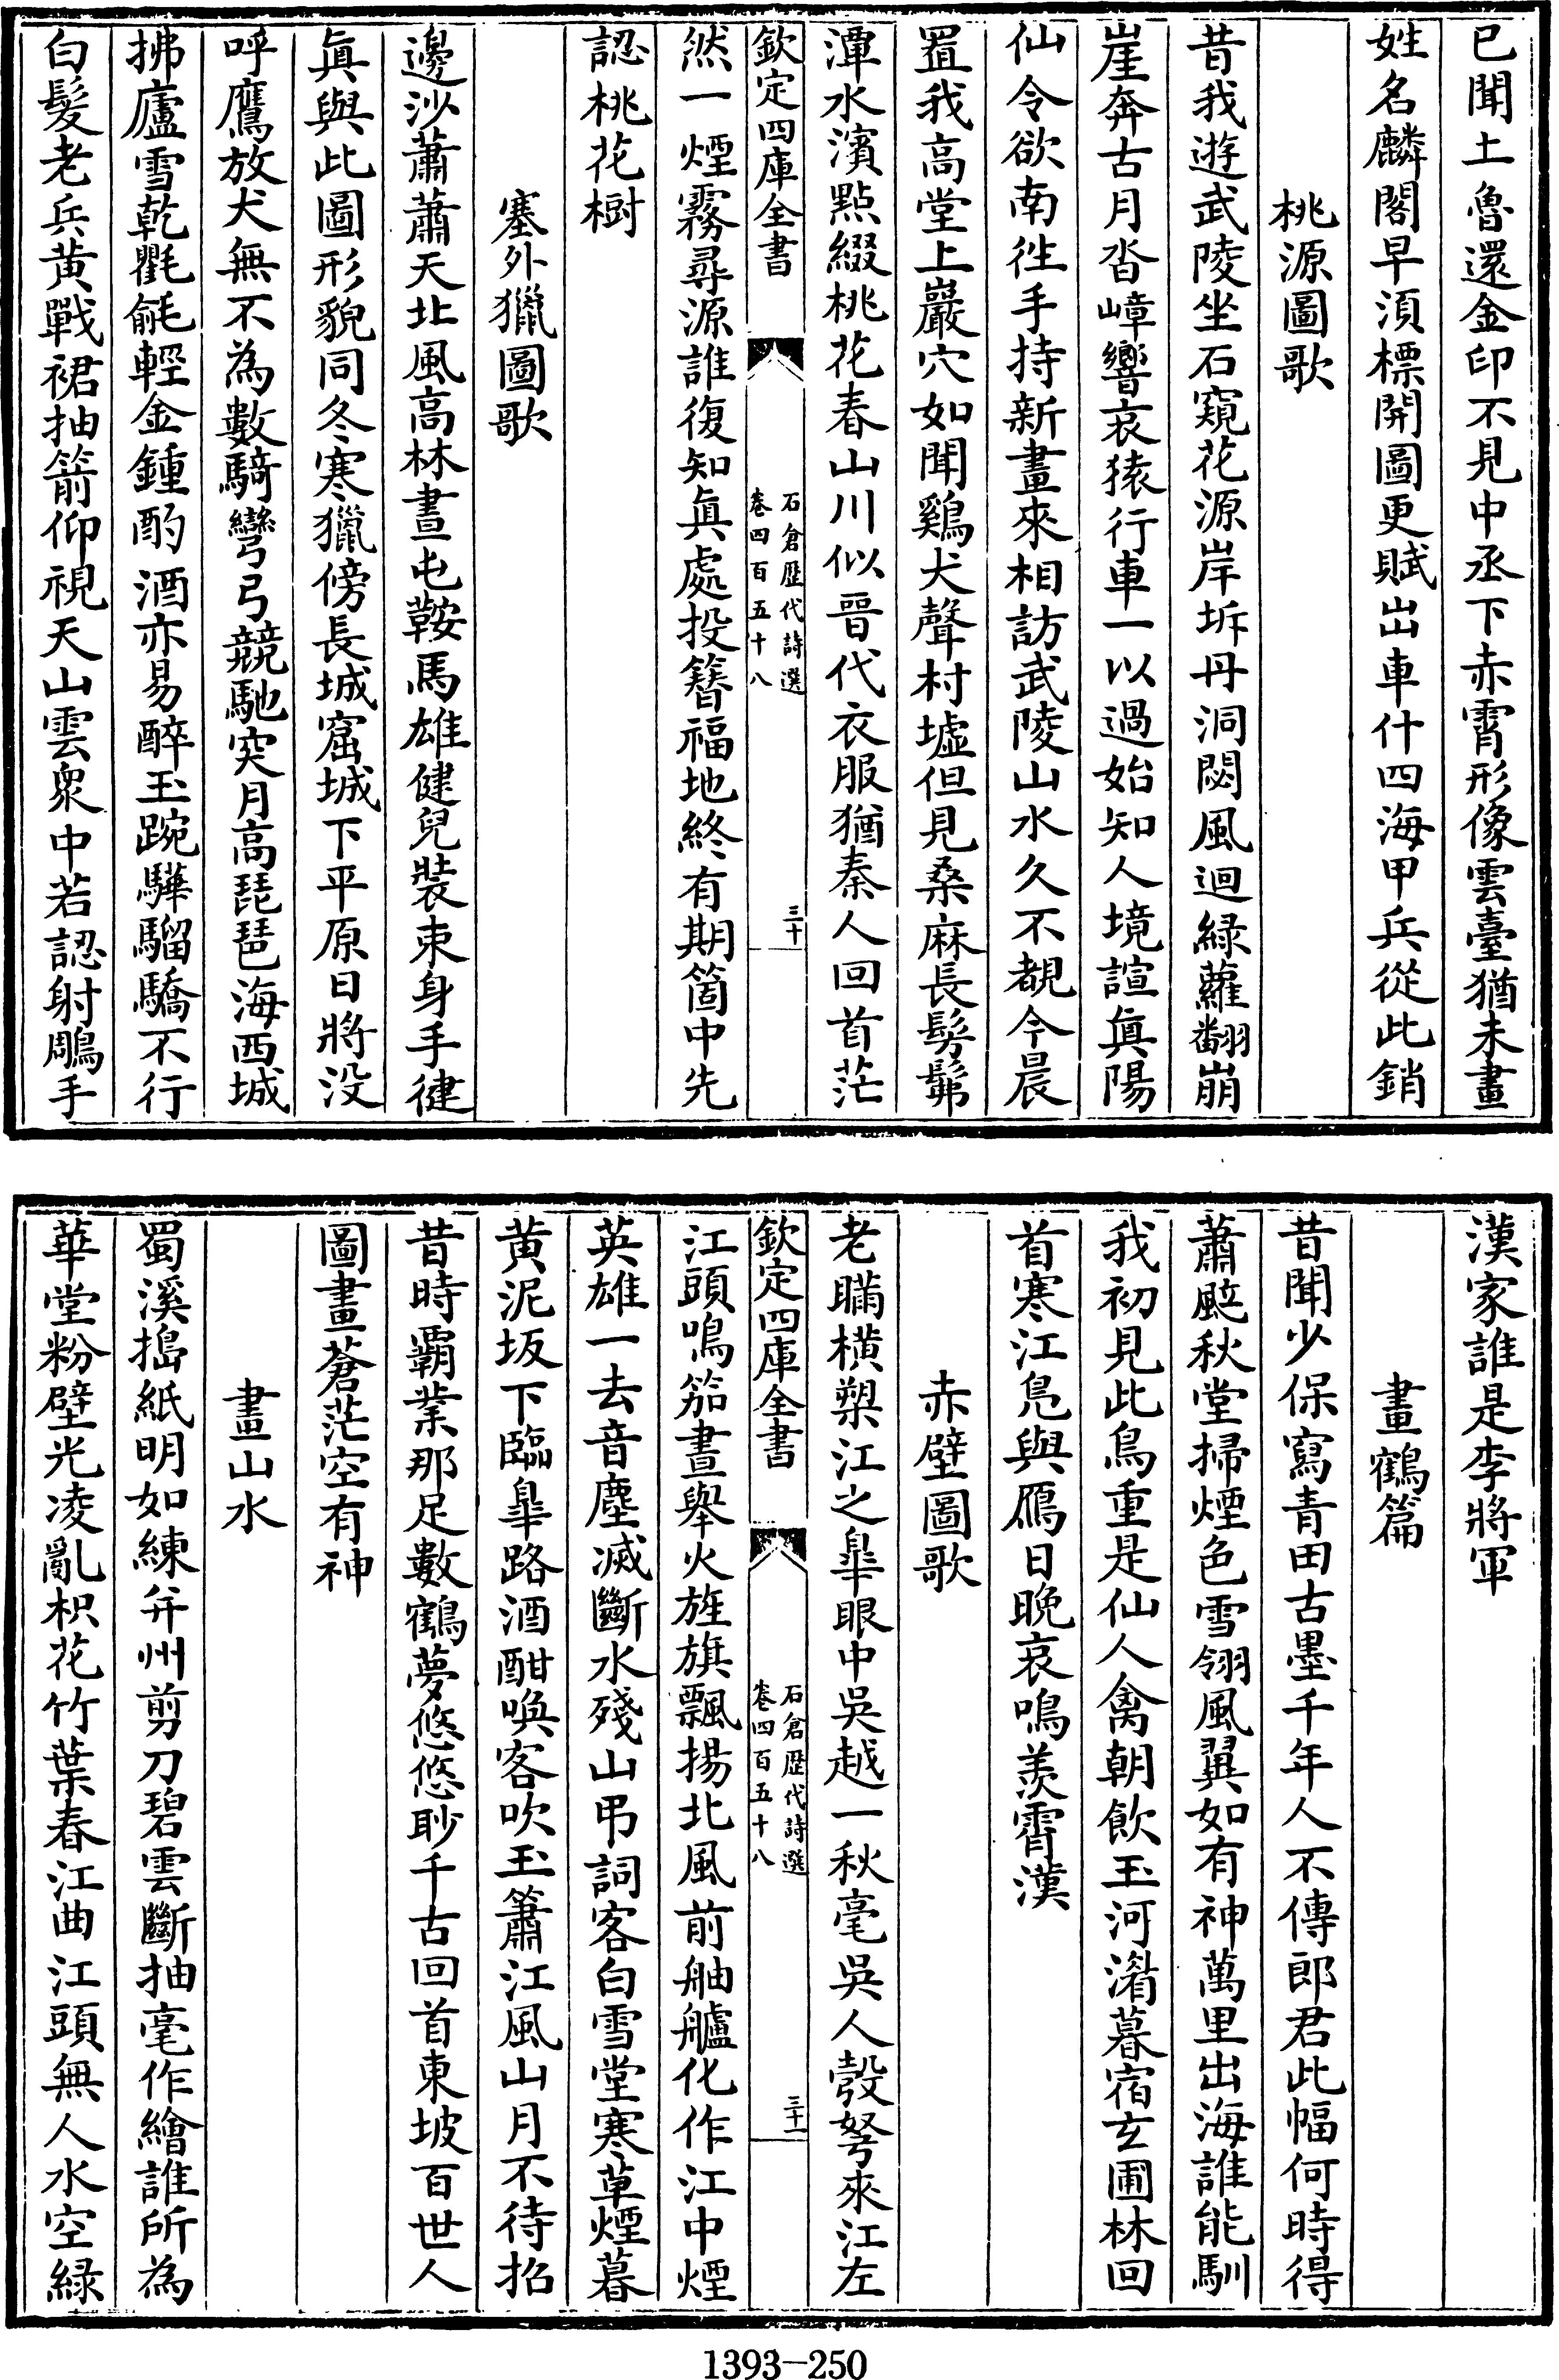 已聞土魯還金印不見中丞下赤霄形像雲臺猶未畫
姓名麟閣早須標開圖更賦出車什四海甲兵從此銷
桃源圖歌
昔我遊武陵坐石窺花源岸坼丹洞閟風迴綠蘿翻崩
崖奔古月沓嶂響哀猿行車一以過始知人境諠眞陽
仙令欲南徃手持新畫來相訪武陵山水久不覩今晨
置我高堂上巖穴如聞鷄犬聲村墟但見桑麻長髣髴
潭水濱點綴桃花春山川似晉代衣服猶秦人回首茫
欽定四庫全書
石倉歷代詩選
卷四百五十八
三十
然一煙霧尋源誰復知眞處投簪福地終有期箇中先
認桃花樹
塞外獵圖歌
邊沙蕭蕭天北風高林晝屯鞍馬雄健兒裝束身手徤
眞與此圖形貌同冬寒獵傍長城窟城下平原日將沒
呼鷹放犬無不為數騎彎弓競馳突月高琵琶海西城
拂廬雪乾氍毹輕金鍾酌酒亦易醉玉踠驊騮驕不行
白髮老兵黃戰裙抽箭仰視天山雲衆中若認射鵰手
漢家誰是李將軍
畫鶴篇
昔聞少保寫青田古墨千年人不傳郎君此幅何時得
蕭颴秋堂掃煙色雪翎風翼如有神萬里出海誰能馴
我初見此鳥重是仙人禽朝飲玉河湑暮宿玄圃林回
首寒江鳬與鴈日晚哀鳴羨霄漢
赤壁圖歌
老瞞橫槊江之臯眼中吳越一秋毫吳人彀弩來江左
欽定四庫全書
石倉歷代詩選
卷四百五十八
三十一
江頭鳴笳晝舉火旌旗飄揚北風前舳艫化作江中煙
英雄一去音塵滅斷水殘山弔詞客白雪堂寒草煙暮
黃泥坂下臨臯路酒酣喚客吹玉簫江風山月不待招
昔時霸業那足數鶴夢悠悠眇千古回首東坡百世人
圖畫蒼茫空有神
畫山水
蜀溪搗紙明如練并州剪刀碧雲斷抽毫作繪誰所為
華堂粉壁光凌亂枳花竹葉春江曲江頭無人水空綠
1393—250